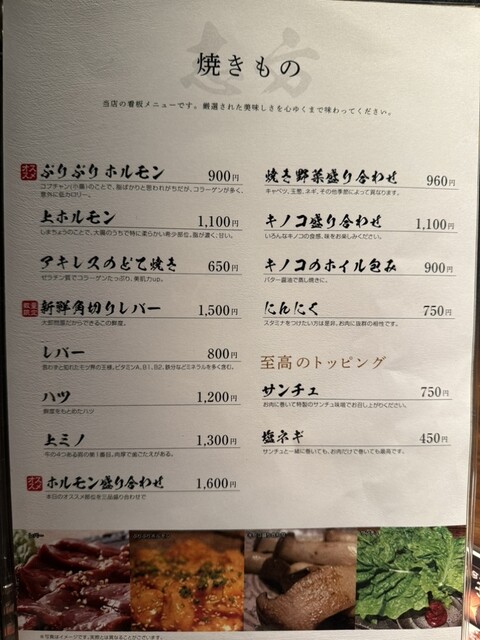 焼きもの
当店の看板メニューです。厳選された美味しさを心ゆくまで味わってください。
オススメ
ぷりぷりホルモン 900円
コプチャン(小腸)のことで、脂ばかりと思われがちだが、コラーゲンが多く、
意外に低カロリー。
上ホルモン 1,100円
しまちょうのことで、大腸のうちで特に柔らかい希少部位。脂が濃く、甘い。
アキレスのどて焼き 650円
ゼラチン質でコラーゲンたっぷり、美肌力up。
数量限定
新鮮角切りレバー 1,500円
大部問屋だからできるこの鮮度。
レバー 800円
ハツ 1,200円
鮮度をもとめたハツ
上ミノ 1,300円
牛の4つある胃の第1番目。肉厚で歯ごたえがある。
オススメ
ホルモン盛り合わせ 1,600円
本日のオススメ部位を三品盛り合わせで
焼き野菜盛り合わせ 960円
キャベツ、玉葱、ネギ、その他季節によって異なります。
キノコ盛り合わせ 1,100円
いろんなキノコの食感、味をお楽しみください。
キノコのホイル包み 900円
バター醤油で蒸し焼きに。
にんにく 750円
スタミナをつけたい方は是非。お肉に抜群の相性です。
至高のトッピング
サンチュ 750円
お肉に巻いて特製のサンチュ味噌でお召し上がりください。
塩ネギ 450円
サンチュと一緒に巻いても、お肉だけで巻いても最高です。
※写真はイメージです。実際とは異なることがございます。